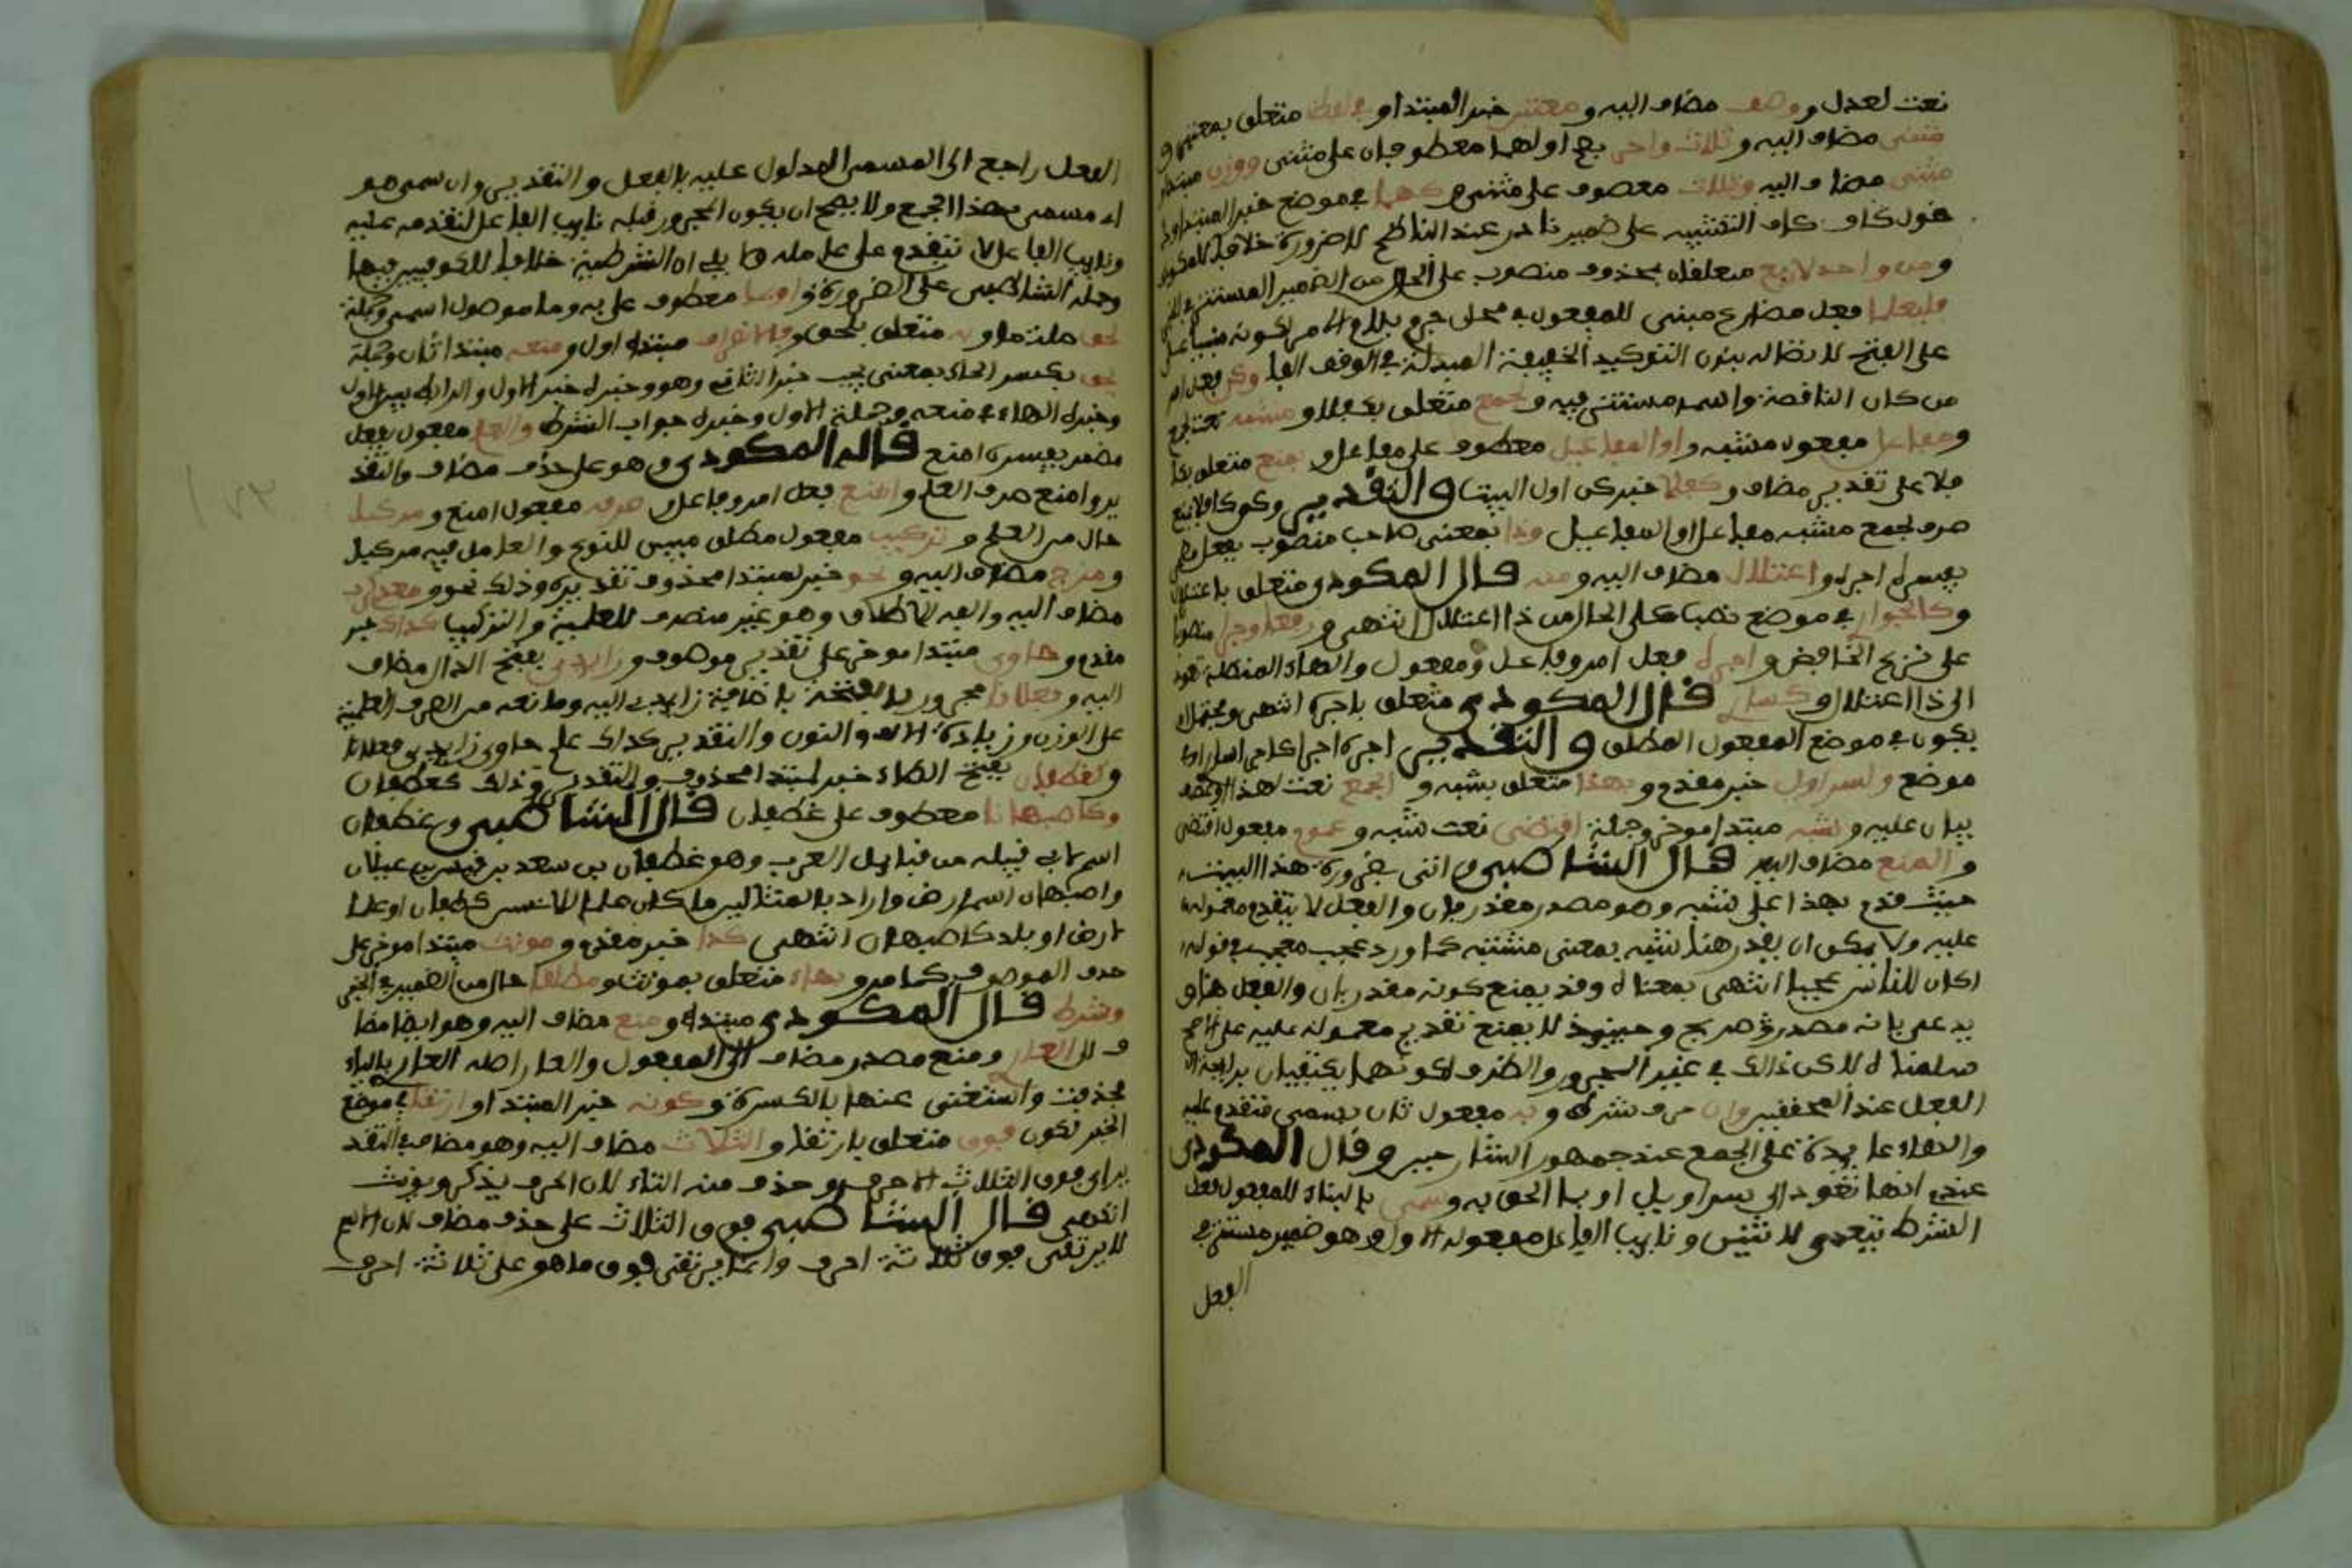 نعت لعدل ووصف مضاف اليه ومعتبر خبر المبتدا وفي لفظ متعلق بمعتبر و
مثنى مضاف اليه وثلاث واخر بعد اولهما معطوفان على مثنى ووزن مبتدا
مثنى مضاف اليه وثلاث معطوف على مثنى وكهما في موضع خبر المبتدا
كاف التشبيه على ضمير نادر عند الناظم للضرورة خلافا
ومن واحد لاربع متعلقان بمحذوف منصوب على الحال من الضمير المستتر في
فليعلما فعل مضارع مبني للمفعول في محل جزم بلام الامر لكونه مبنيا
على الفتح لاتصاله بنون التوكيد الخفيفة المبدلة في الوقف الفا وكن فعل امر
من كان الناقصة واسمه مستتر فيه ولجمع متعلق بكافلا ومشبه نعت لجمع
ومفاعلا مفعول مشبه واو المفاعيل معطوف على مفاعل وبمنع متعلق بكا
فلا على تقدير مضاف وكافلا خبر كن اول البيت والتقدير وكن كافلا بمنع
صرف لجمع مشبه مفاعل او المفاعيل وذا بمعنى صاحب منصوب بفعل
يفسره اجره واعتلال مضاف اليه ومنه قال المكودي متعلق باعتلال
وكالجواري في موضع نصب على الحال من ذا اعتلال انتهى ورفعا وجرا منصوبا
على نزع الخافض واجره فعل امر وفاعل ومفعول والهاء المتصلة تعود
الى ذا اعتلال وكساري قال المكودي متعلق باجره انتهى ويحتمل ان
يكون في موضع المفعول المطلق والتقدير اجره اجراء كاجراء ساري
موضع ولسراويل خبر مقدم وبهذا متعلق بشبه والجمع نعت لهذا او عطف
بيان عليه وشبه مبتدا موخر وجملة اقتضى نعت شبه وعموم مفعول اقتضى
والمنع مضاف اليه قال الشاطبي واتى بضرورة هذا البيت
حيث قدم بهذا على شبه وهو مصدر مقدر بان والفعل لا يتقدم معموله
عليه ولا يمكن ان يقدر هنا شبه بمعنى مشبه كما ورد عجب معجب في قوله
اكان للناس عجبا انتهى بمعناه وقد يمنع كونه مقدر بان والفعل هنا و
يدعى بانه مصدر صريح وحينئذ لا يمنع تقديم معموله عليه على الاصح
سلمناه لاكن ذالك في غير المجرور والظرف لكونهما يكتفيان برايحة
الفعل عند المحققين وان حرف شرط وبه مفعول ثان بسمي فتقدم عليه
والهاء عايدة على الجمع عند جمهور الشارحين وقال المكودي
عندي انها تعود الى سراويل او بما الحق به وسمي بالبناء للمفعول فعل
الشرط يتعدى لاثنين ونايب الفاعل مفعوله الاول وهو ضمير مستتر في
الفعل
الفعل راجع الى المسمى المدلول عليه بالفعل والتقدير وان سمي هو
اي مسمى بهذا الجمع ولا يصح ان يكون المجرور قبله نايب الفاعل لتقدمه عليه
ونايب الفاعل لا يتقدم على عامله ولا يلي ان الشرطية خلافا للكوفيين فيهما
وحمله الشاطبي على الضرورة او بما معطوف على به وما موصول اسمي وجملة
لحق صلت ما وبه متعلق بلحق وفالانصراف مبتدا اول ومنعه مبتدا ثان وجملة
يحق بكسر الحاء بمعنى يجب خبر الثاني وهو وخبره خبر الاول والرابط بين الاول
وخبره الهاء في منعه وجملة الاول وخبره جواب الشرط والعلم مفعول بفعل
مضمر يفسره امنع قاله المكودي وهو على حذف مضاف والتقد
ير وامنع صرف العلم وامنع فعل امر وفاعل وصرفه مفعول امنع ومركبا
حال من العلم وتركيب مفعول مطلق مبين للنوع والعامل فيه مركبا
ومزج مضاف اليه ونحو خبر لمبتدا محذوف تقديره وذلك نحو ومعدي كرب
مضاف اليه والفه للاطلاق وهو غير منصرف للعلمية والتركيب كذاك خبر
مقدم وحاوي مبتدا موخر على تقدير موصوف وزايدي بفتح الدال مضاف
اليه وفعلانا مجرور بالفتحة باضافة زايدي اليه ومانعه من الصرف العلمية
على الوزن وزيادة الالف والنون والتقدير كذاك علم حاوي زايدي فعلانا
وكغطفان بفتح الطاء خبر لمبتدا محذوف والتقدير وذلك كغطفان
وكاصبهانا معطوف على غطفان قال الشاطبي وغطفان
اسم ابي قبيله من قبايل العرب وهو غطفان بن سعد بن قيس بن عيلان
واصبهان اسم ارض واراد بالمثالين ما كان علما لاناس كغطفان او علما
لارض او بلد كاصبهان انتهى كذا خبر مقدم ومونث مبتدا موخر على
حذف الموصوف كما مر وبهاء متعلق بمونث ومطلقا حال من الضمير في الخبر
وشرط قال المكودي مبتدا ومنع مضاف اليه وهو ايضا مضا
ف للعار ومنع مصدر مضاف الى المفعول والعار اصله العاري بالياء
فحذفت واستغنى عنها بالكسرة وكونه خبر المبتدا وارتقا في موضع
الخبر لكون فوق متعلق بارتقا والثلاث مضاف اليه وهو مضاف في التقد
ير اي فوق الثلاث الاحرف وحذف منه التاء لان الحرف يذكر ويونث
انتهى قال الشاطبي فوق الثلاث على حذف مضاف لان الاسم
لا يرتقي فوق ثلاثة احرف وانما يرتقي فوق ما هو على ثلاثة احرف